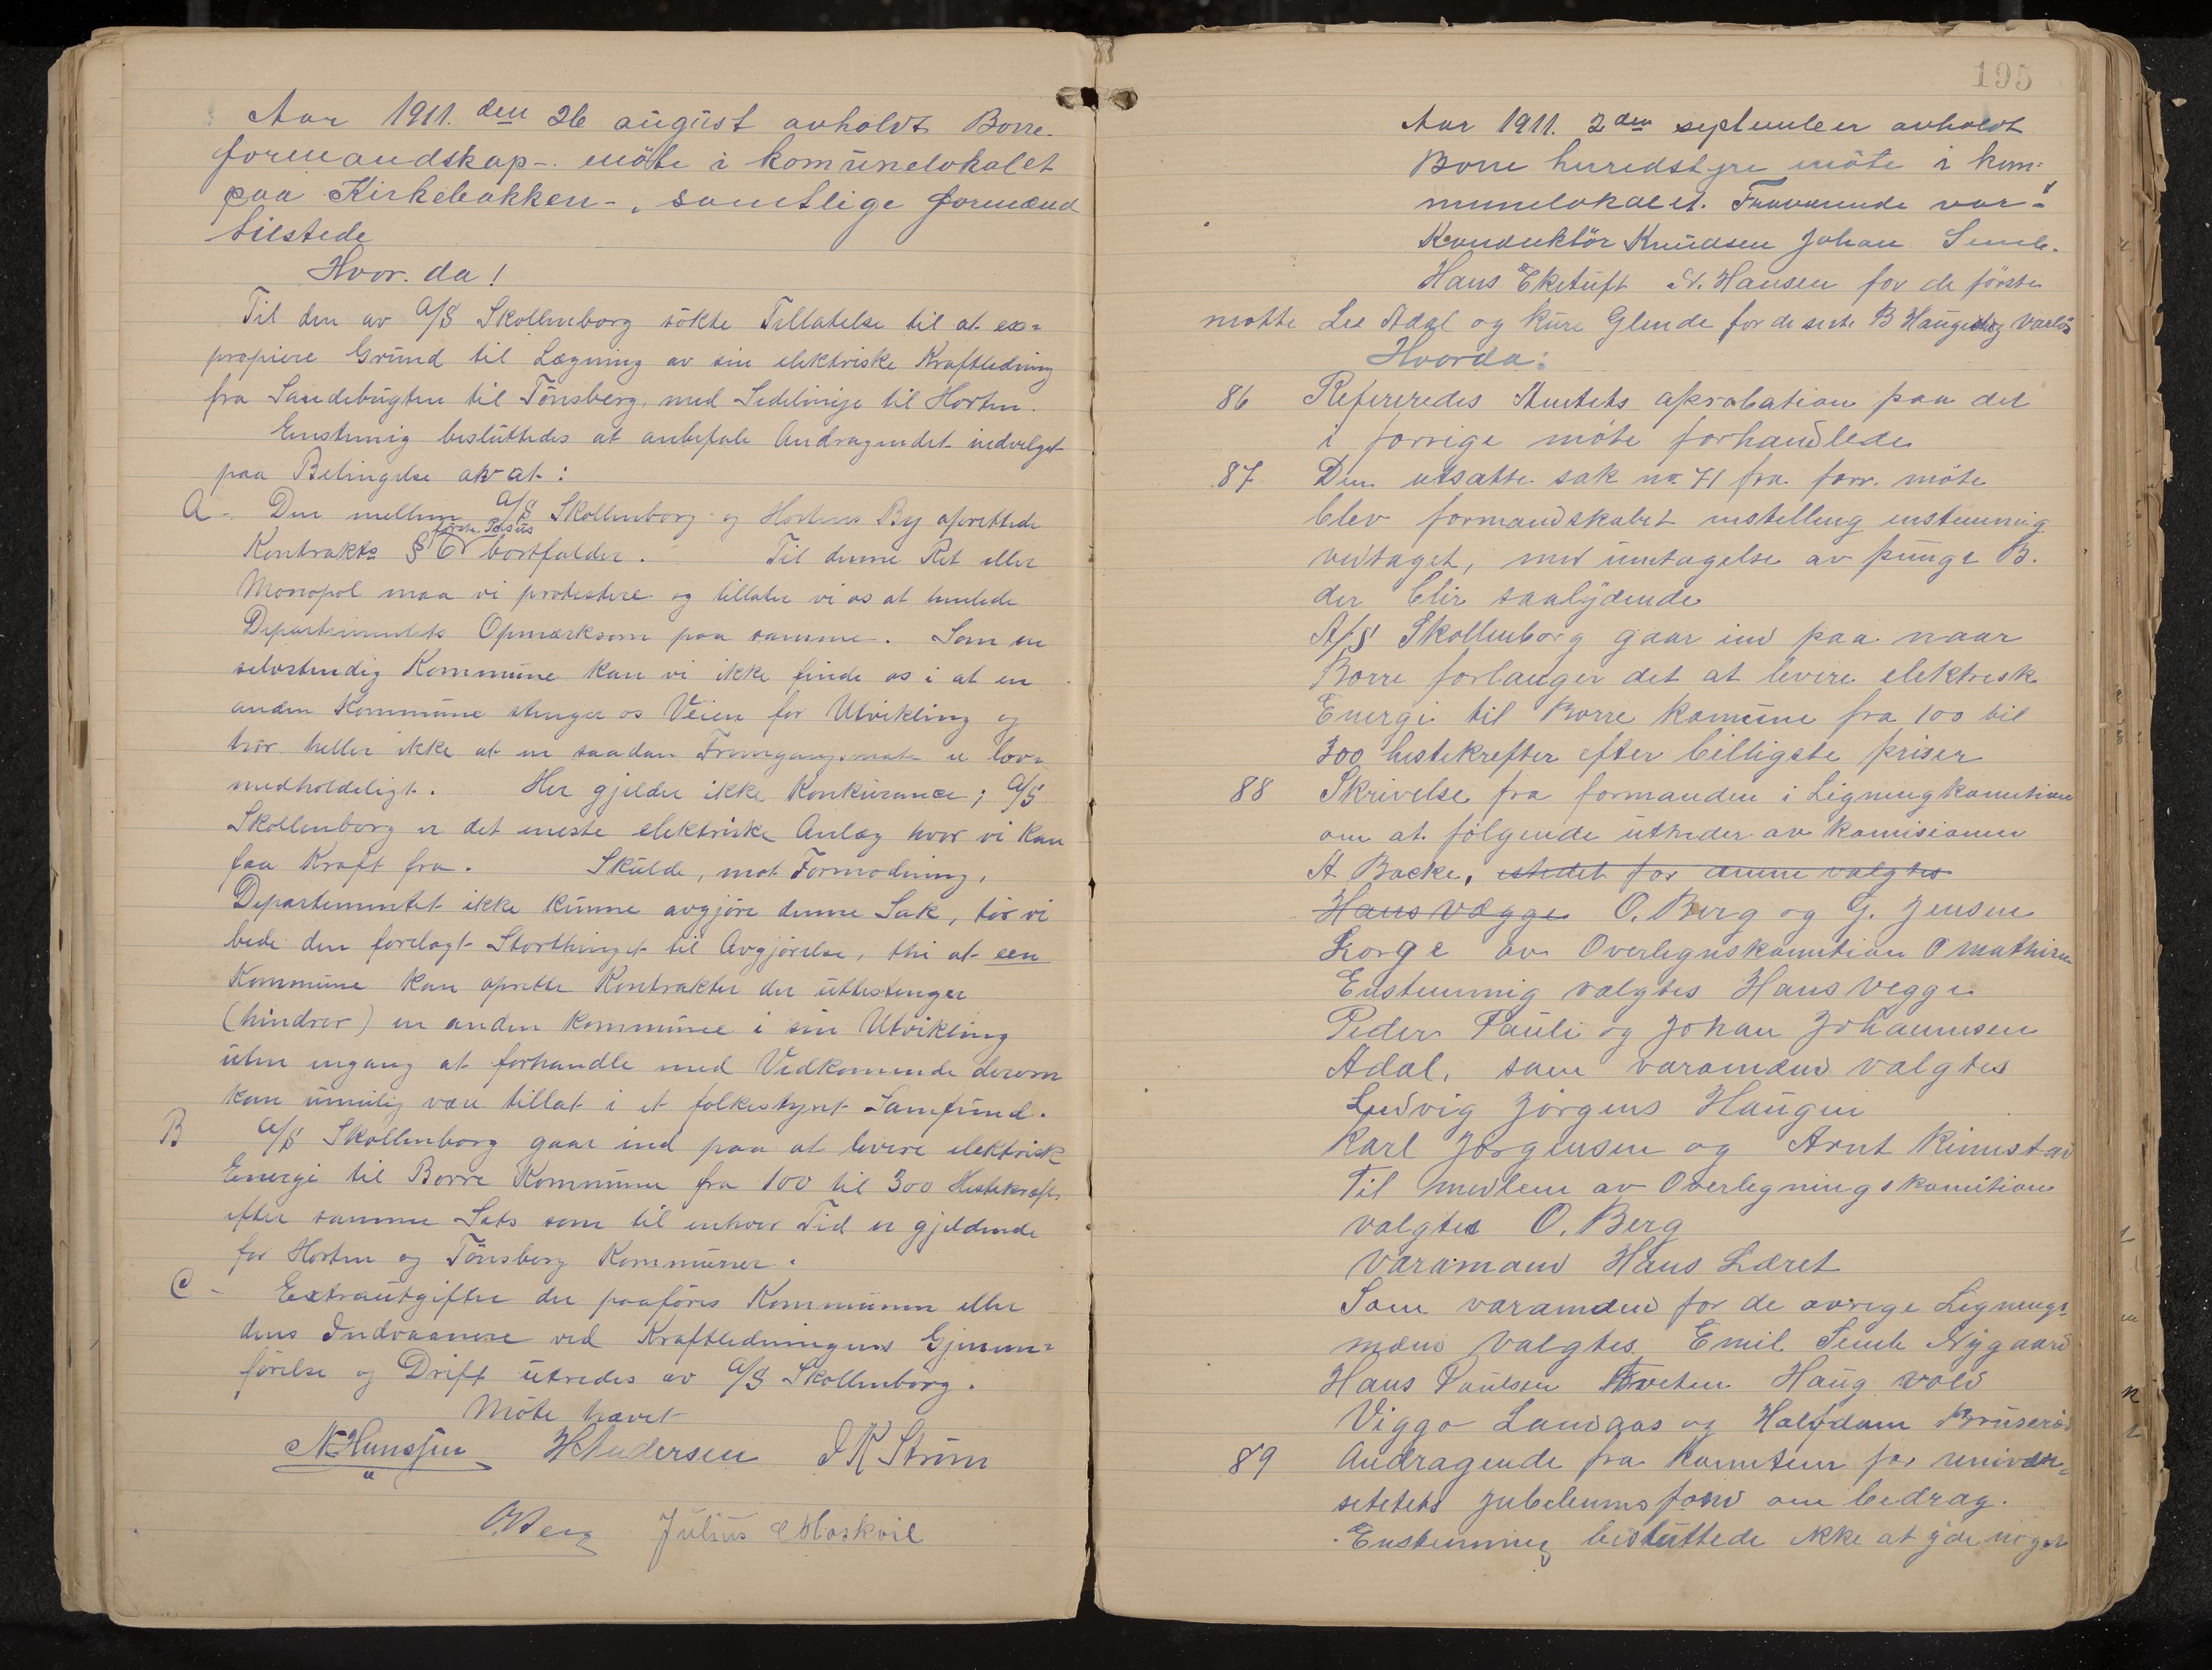 Aar 1911. den 26 august avholdt Borre
formandskap-. möte i komünelokalet
paa Kirkebakken-, samtlige formænd
tilstede
Hvor. da!
Til den av A/S Skollenborg sökte Tillatelse til at ex=
propiere Grund til Lægning av sin elektriske Kraftledning
fra Sandebugten til Tönsberg, med Sidelinje til Horten.
Enstemig besluttedes at anbefale Andragendet indvilget
paa Betingelse av at:
A- Den mellem A/S Skollenborg og Hortens By oprettede
Kontrakts § 6 första Passus bortfalder. Til denne Ret eller
Monopol maa vi protestere og tillater vi os at henlede
Departementets Opmærksom paa samme. Som en
selvstendig Kommune kan vi ikke finde os i at en
anden Kommune stenger os Veien for Utvikling og
tror heller ikke at en saadan Fremgangsmate er lov-
medholdeligt. Her gjelder ikke Konkurance; A/S
Skollenborg er det eneste elektriske Anlæg hvor vi kan
faa Kraft fra. Skulde, mot Formodning,
Departementet ikke kunne avgjöre denne Sak, tör vi
bede den forelagt Storthinget til Avgjörelse, thi at een
Kommune kan oprette Kontrakter der uttestenger
(hindrer) en anden Kommune i sin Utvikling
uten engang at forhandle med Vedkommende derom
kan umulig være tillat i et folkestyret Samfund.
B A/S Skollenborg gaar ind paa at levere elektrisk
Energi til Borre Kommune fra 100 til 300 Hestekræft.
efter samme Sats som til enhver Tid er gjeldende
for Horten og Tönsberg Kommuner.
C- Extraütgifter der paaföres Kommunen eller
dens Indvaanere ved Kraftledningens Gjenem=
förelse og Drift utredes av A/S Skollenborg.
Möte hævet
N Hanssen H Andersen J K Ström
O Berg Julius Moskvil
195
Aar 1911. 2den september avholdt
Borre herredstyre möte i kom=
munelokalet. Fraværende var:
Konduktör Knudsen Johan Semb.
Hans Eketuft N. Hansen for de förste
mötte Lee Adal og Kure Glende for de siste B Haugen
Hvorda:
86 Refereredes Amtets aprobation paa det
i forrige möte forhandlede
87 Den utsatte sak no. 71 fra forr. möte
blev formandskabet instelling enstemmig
vedtaget, med untagelse av punge B.
der blir saalydende
A/S Skollenborg gaar ind paa naar
Borre forlanger det at levere elektrisk
Energi til Borre komune fra 100 til
300 hestekrefter efter billigste priser
88 Skrivelse fra formanden i Ligningkomition
om at fölgende uttreder av komisionen
A Backe, istedet for denne valgtes
Hans Vegge O. Berg og G. Jensen
Lorge av Overlignskomition O Mathisen
Enstemmig valgtes Hans Vegge
Peder Pauli og Johan Johannsen
Adal, som varamænd valgtes
Ludvig Jörgens Haugen
Karl Jörgensen og Arnt Rinnstad
Til medlem av Overlegningskomition
valgtes O. Berg
Varamand Hans Læret
Som varamænd for de övrige Lignings=
mænd Valgtes Emil Semb Nygaard
Hans Paulsen Tveten Haug vold
Viggo Landaas og Halfdan Bruserød
89 Andragende fra Komiteen for univer=
setetets Jubeleumsfond om bedrag.
Enstemmig besluttede ikke at gjöre noget